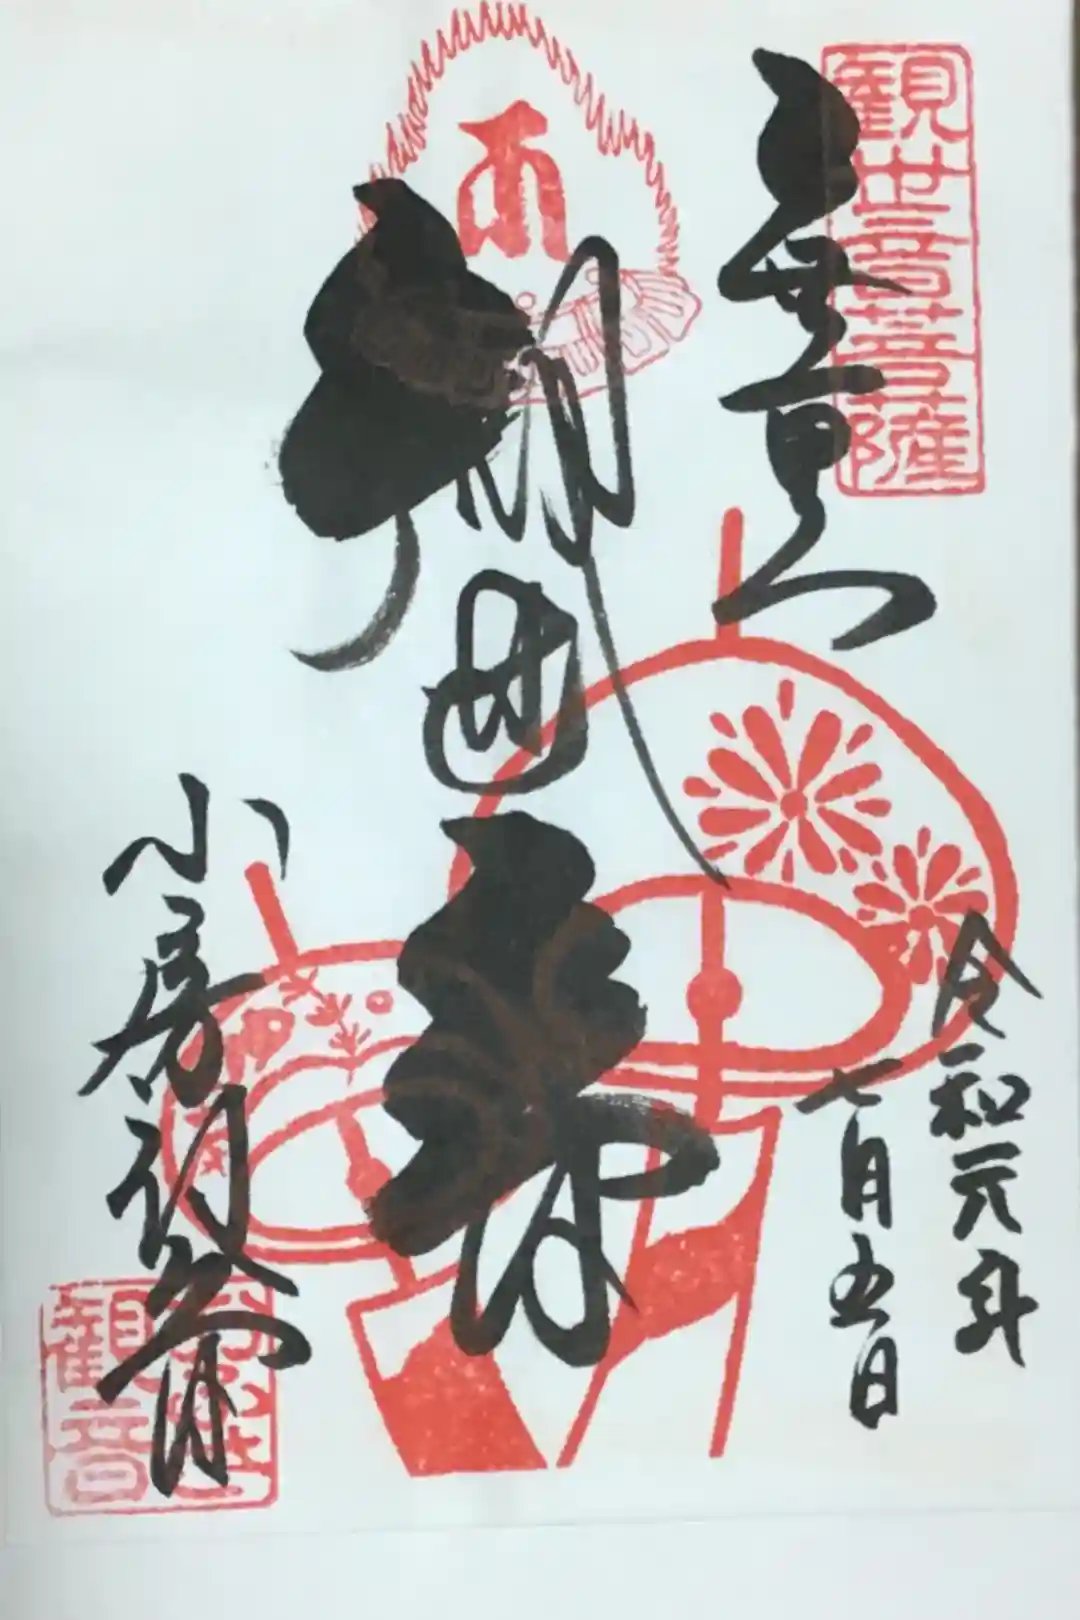 観世音菩薩
十無量山
令和元年
七月五日
観世音
小房観音
観音